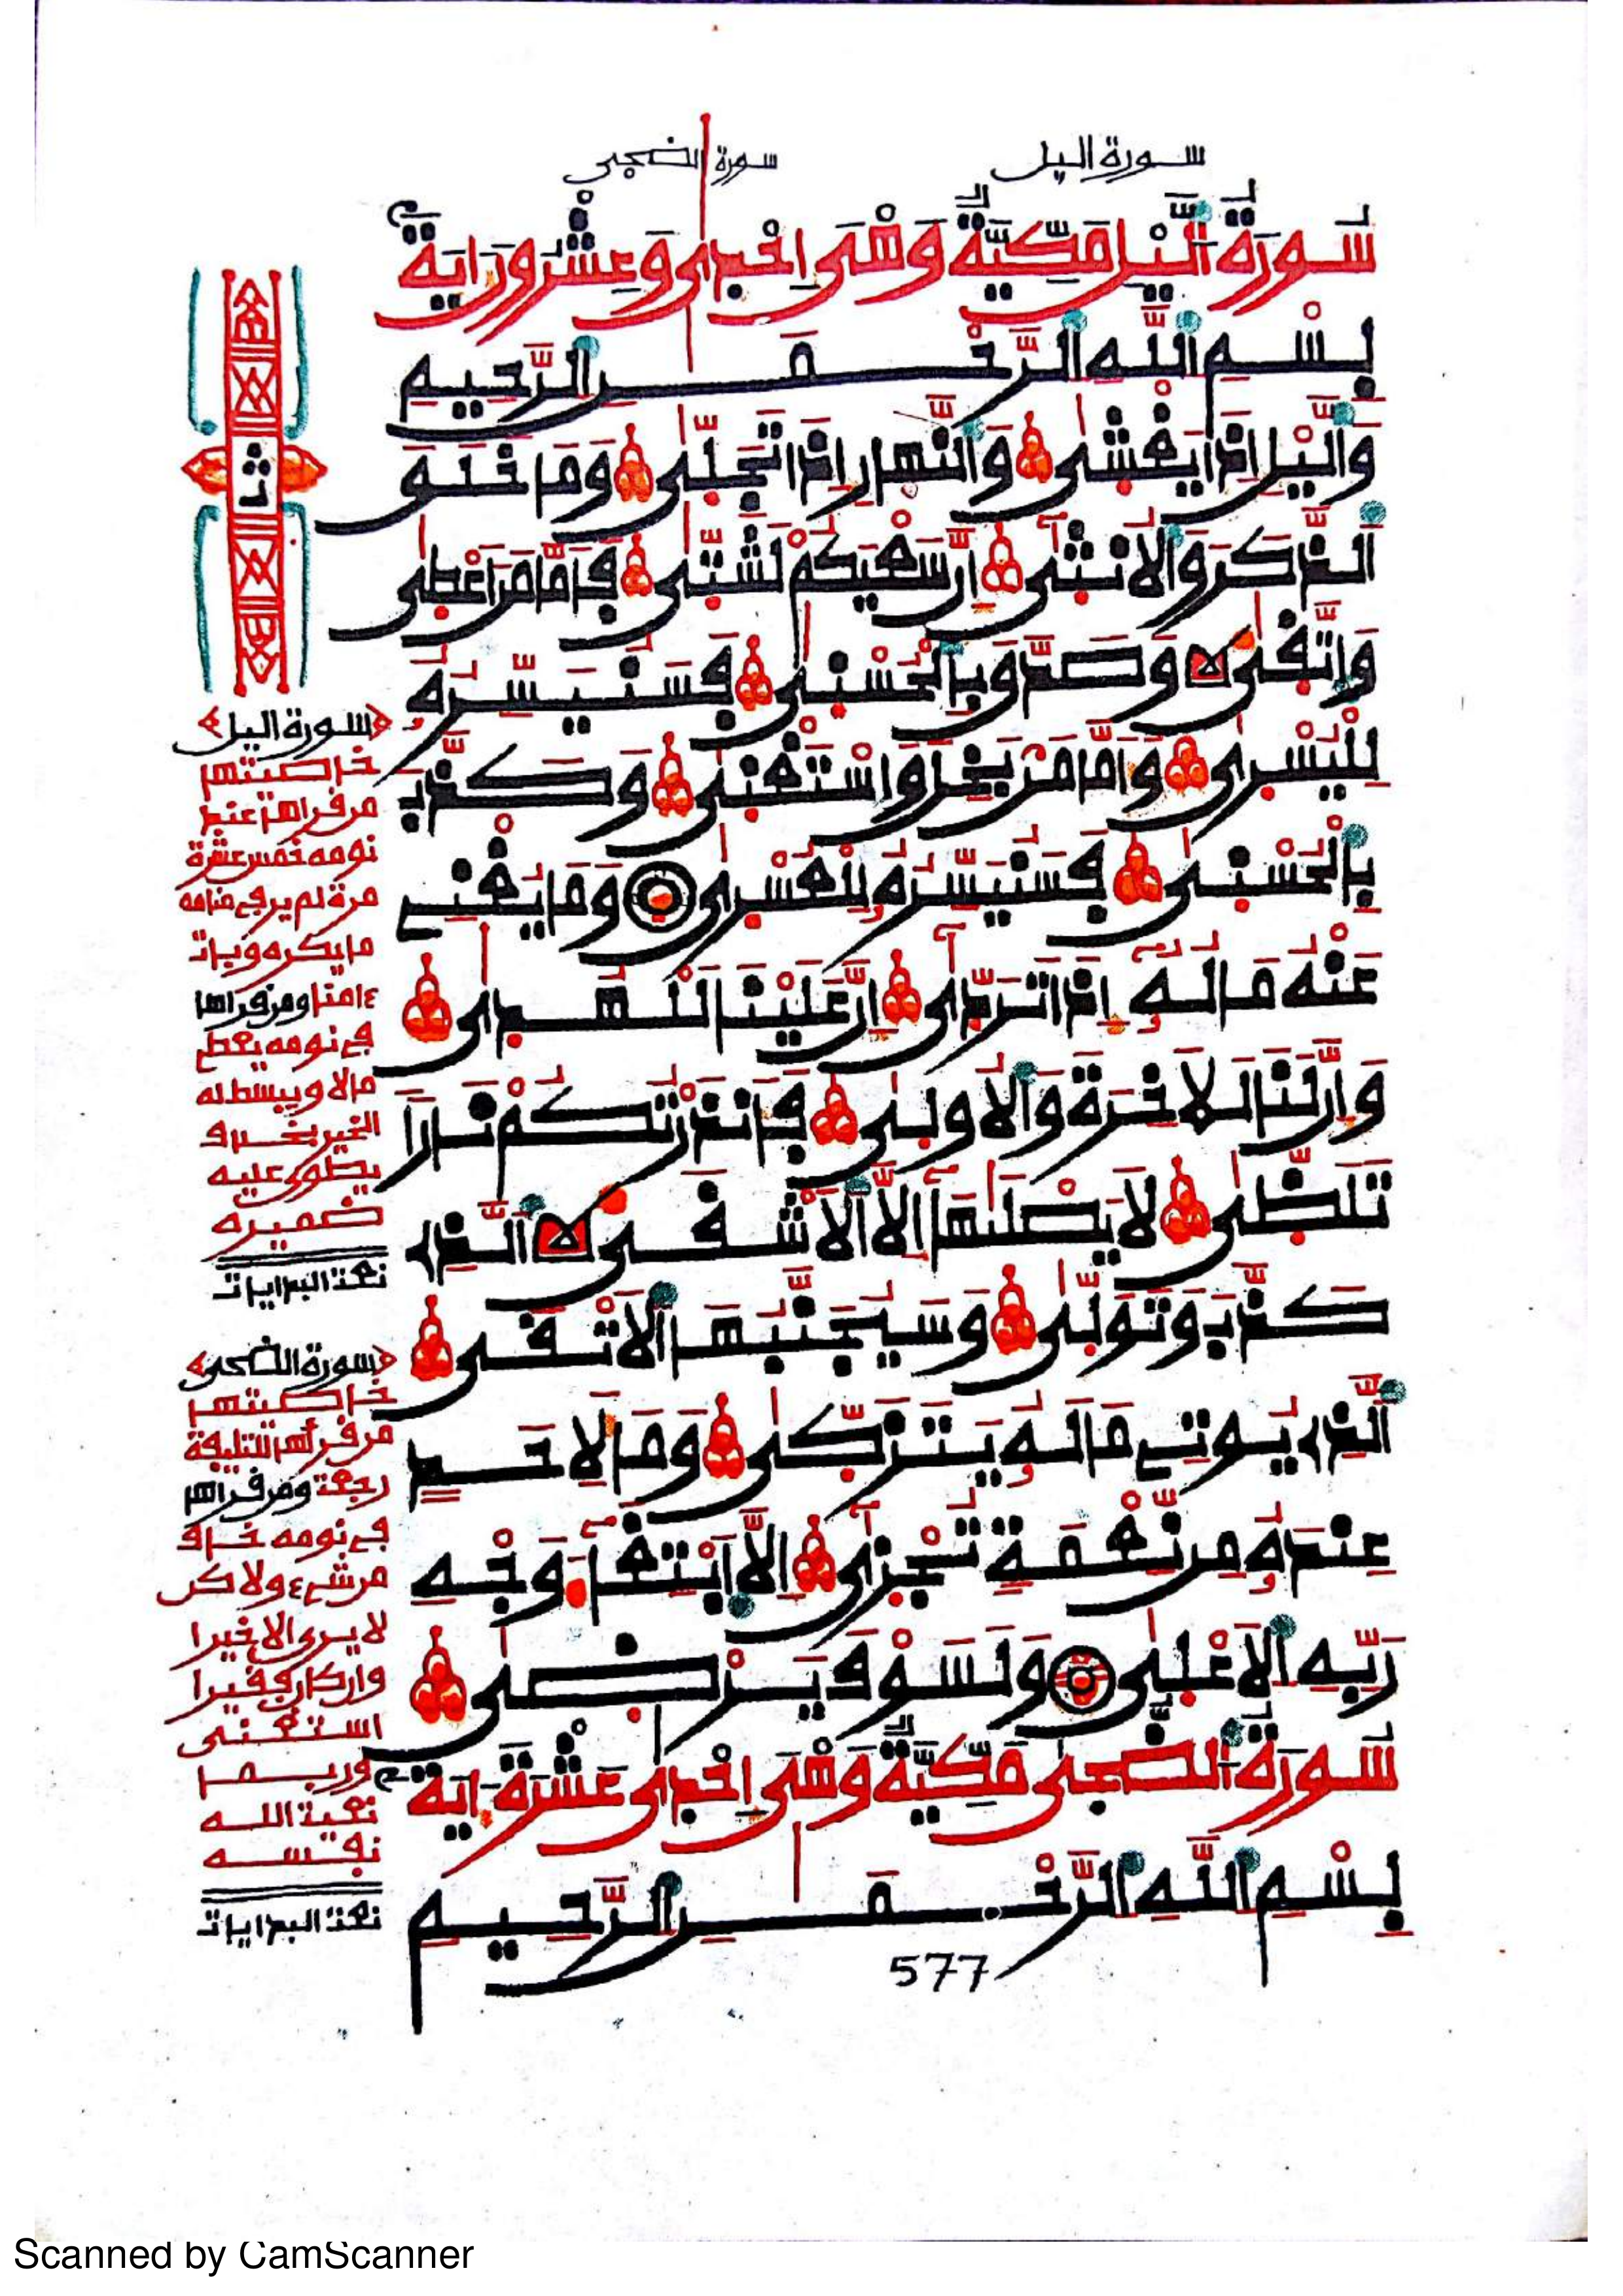 سورة اليل
سورة الضحى
سُورَةُ اَلَّيْلِ مَكِّيَّةٌ وَهْىَ إِحْدَى وَعِشْرُونَ ايَةً
بِسْمِ اِللَّهِ اِلرَّحْمَنِ اِلرَّحِيمِ
وَالَّيْلِ إِذَا يَغْشَى وَالنَّهَارِ إِذَا تَجَلَّى وَمَا خَلَقَ
اَلذَّكَرَ وَالُانثَى إِنَّ سَعْيَكُمْ لَشَتَّى فَأَمَّا مَنَ اَعْطَى
وَاتَّقَى لا وَصَدَّقَ بِالْحُسْنَى فَسَنُيَسِّرُهُ
لِلْيُسْرَى وَأَمَّا مَنْ بَخِلَ وَاسْتَغْنَى وَكَذَّبَ
بِالْحُسْنَى فَسَنُيَسِّرُهُ لِلْعُسْرَى وَمَا يُغْنِى
عَنْهُ مَالُهُ إِذَا تَرَدَّى إِنَّ عَلَيْنَا لَلْهُدَى
وَإِنَّ لَنَا لَلَاخِرَةَ وَالُاولَى فَأَنذَرْتُكُمْ نَاراً
تَلَظَّى لَا يَصْلَىهَا إِلَّا اَلَاشْقَى لا اَلذِى
كَذَّبَ وَتَوَلَّى وَسَيُجَنَّبُهَا اَلَاتْقَى
اَلذِى يُوتِى مَالَهُ يَتَزَكَّى وَمَا لِأَحَدٍ
عِندَهُ مِن نِّعْمَةٍ تُجْزَى إِلَّا اَبْتِغَآءَ وَجْهِ
رَبِّهِ اِلَاعْلَى وَلَسَوْفَ يَرْضَى
سُورَةُ اَلضُّحَى مَكِّيَّةٌ وَهْىَ إِحْدَى عَشْرَةَ ايَةً
بِسْمِ اِللَّهِ اِلرَّحْمَنِ اِلرَّحِيمِ
577
ث
سورة اليل
خاصيتها
من قراها عند
نومه خمس عشرة
مرة لم ير في منامه
ما يكره وبات
ءامنا ومن قراها
في نومه يعطى
مالا ويبسط له
الخير بخلاف
يطوى عليه
ضميره
نعت البدايات
سورة الضحى
خاصيتها
من قرأها للتليفة
رجعت ومن قراها
في نومه خاف
من شيء ولاكن
لا يرى الا خيرا
وان كان فقيرا
استغنى
وربما
نعية الله
نفسه
نعت البدايات
Scanned by CamScanner